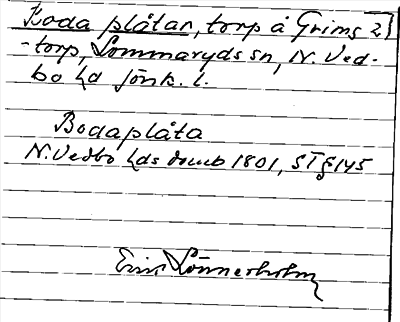 Boda plåtar, torp å Grims 2]
-torp, Lommaryds sn, N. Ved-
bo hd Jönk. l.
Bodaplåta
N. Vedbo hds domb 1801, ST § 145
Erik Lönnerholm